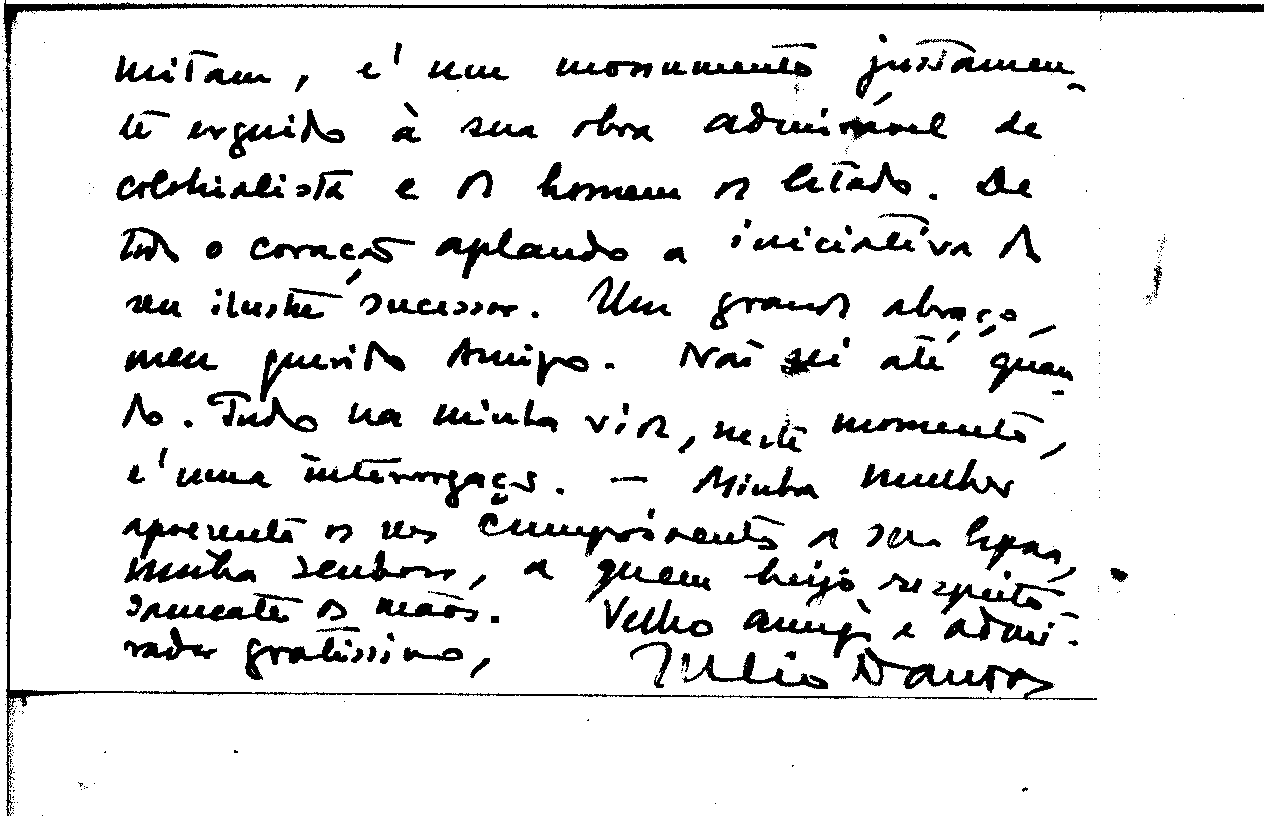 mitam, é um monumento justamen-
te erguido à sua obra admirável de
colonialista e de homem de Estado. De
todo o coração aplaudo a iniciativa do
seu ilustre sucessor. Um grande abraço,
meu querido Amigo. Não sei até quan-
do. Tudo na minha vida, neste momento,
é uma interrogação. — Minha mulher
apresenta os seus cumprimentos a sua
minha senhora, a quem beijo respeito-
samente as mãos. Velho amigo e admi-
rador gratíssimo,
Julio Dantas